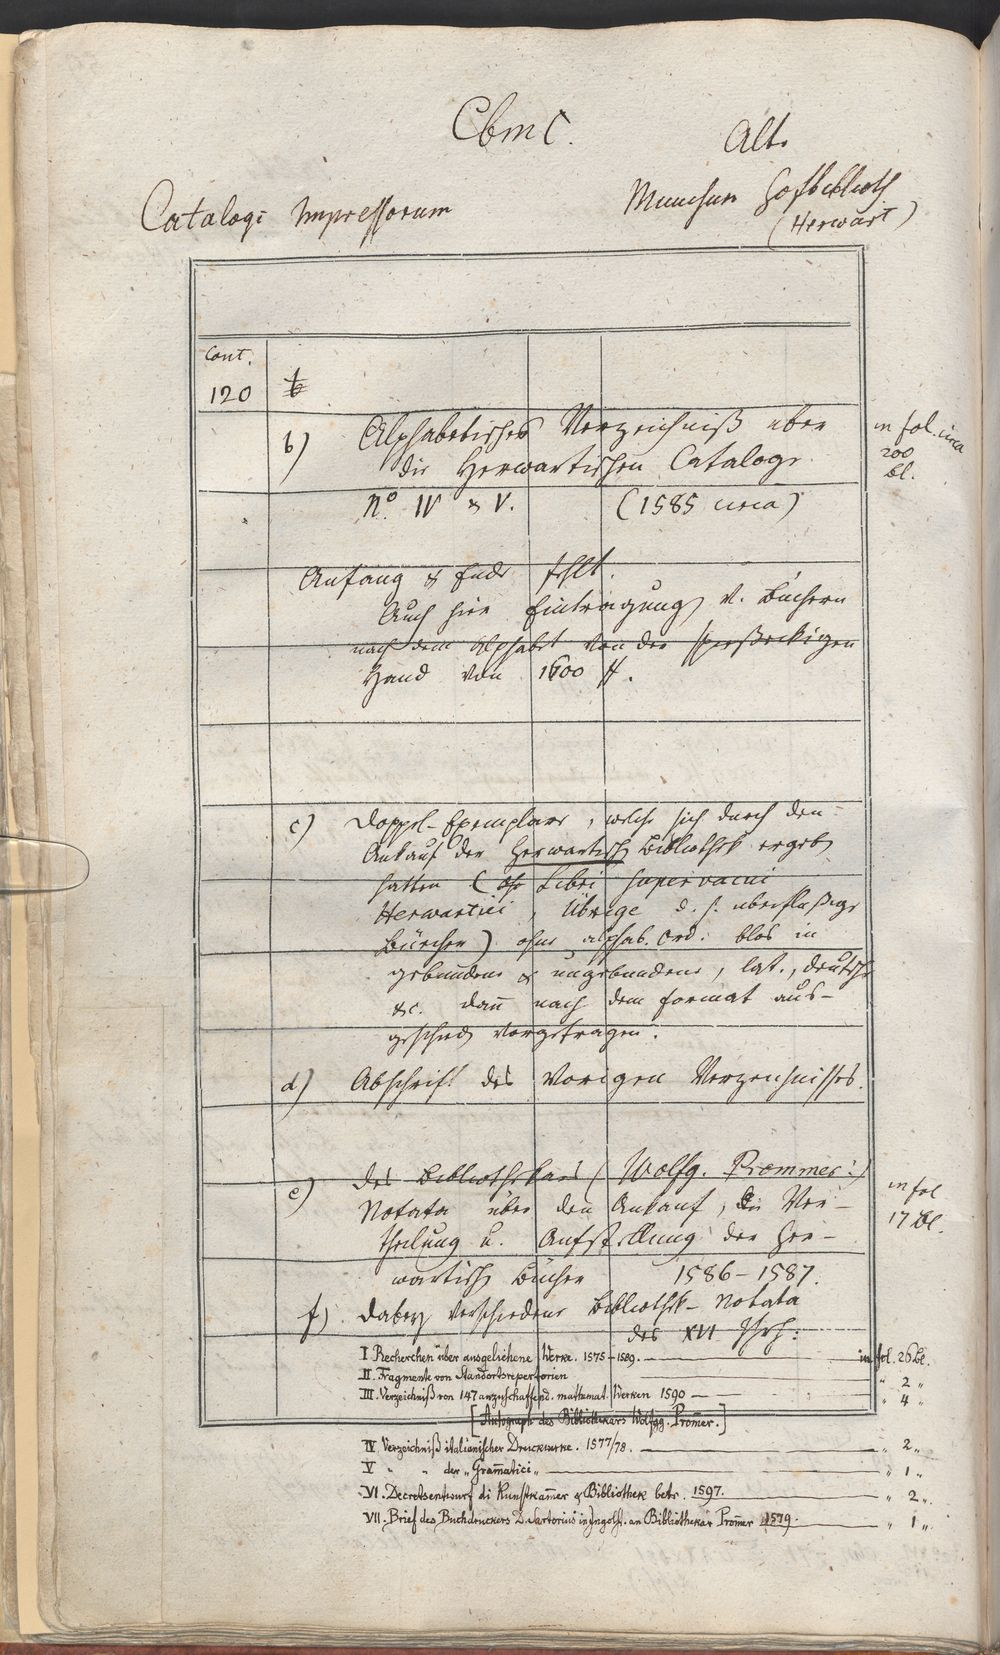 Cbm C.
Alt.
Catalogi Impressorum
München Hofbiblioth
(Herwart)
Cont.
120
b) Alphabetisches Verzeichniß über
in fol. circa
die Herwartischen Cataloge
200
Bl.
No. IV & V. (1585 circa)
Anfang & Ende fehlt.
Auch hier Eintragung v. Büchern
nach dem Alphabet von der
Hand von 1600 ff.
c) Doppel-Exemplare, welche sich durch den
Ankauf der Herwartisch Bibliothek ergeb
hatten (Libri supervacui
Herwartici, übrige d. h. überflüßige
Bücher) ohne alphab. Ord. blos in
gebundene & ungebundene, lat., deutsche
&c. dan̄ nach dem Format aus-
geschied vorgetragen.
d) Abschrift des vorigen Verzeichnisses.
e) des Bibliothekars (Wolfg. Prommer:)
in fol
Notata über den Ankauf, die Ver-
17 Bl.
theilung u. Aufstellung der Her-
wartisch Bücher 1586-1587.
f) Dabey verschiedene Bibliothek-Notata
des XVI Jhrh:
I Recherchen über ausgeliehene Werke. 1575-1589. — in fol. 26 Bl.
II. Fragmente von Standortsrepertorien — " 2 "
III. Verzeichniß von 147 anzuschaffend. mathemat. Werken 1590 — " 4 "
[Autograph des Bibliothekars Wolfgg. Prom̄er.]
IV Verzeichniß italiänischer Druckwerke. 1577/78. — " 2 "
V " " der "Gram̄atici" — " 1 "
VI. Decretsentwurf di Kunstkam̄er & Bibliothek betr. 1597. — " 2 "
VII. Brief des Buchdruckers D. Sartorius in Ingolst. an Bibliothekar Prom̄er 1579. — " 1 "